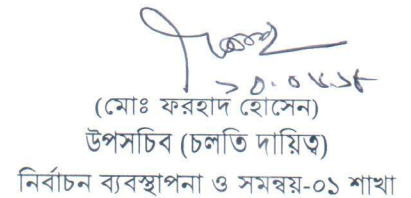 (মোঃ ফরহাদ হোসেন)
উপসচিব (চলতি দায়িত্ব)
নির্বাচন ব্যবস্থাপনা ও সমন্বয়-০১ শাখা